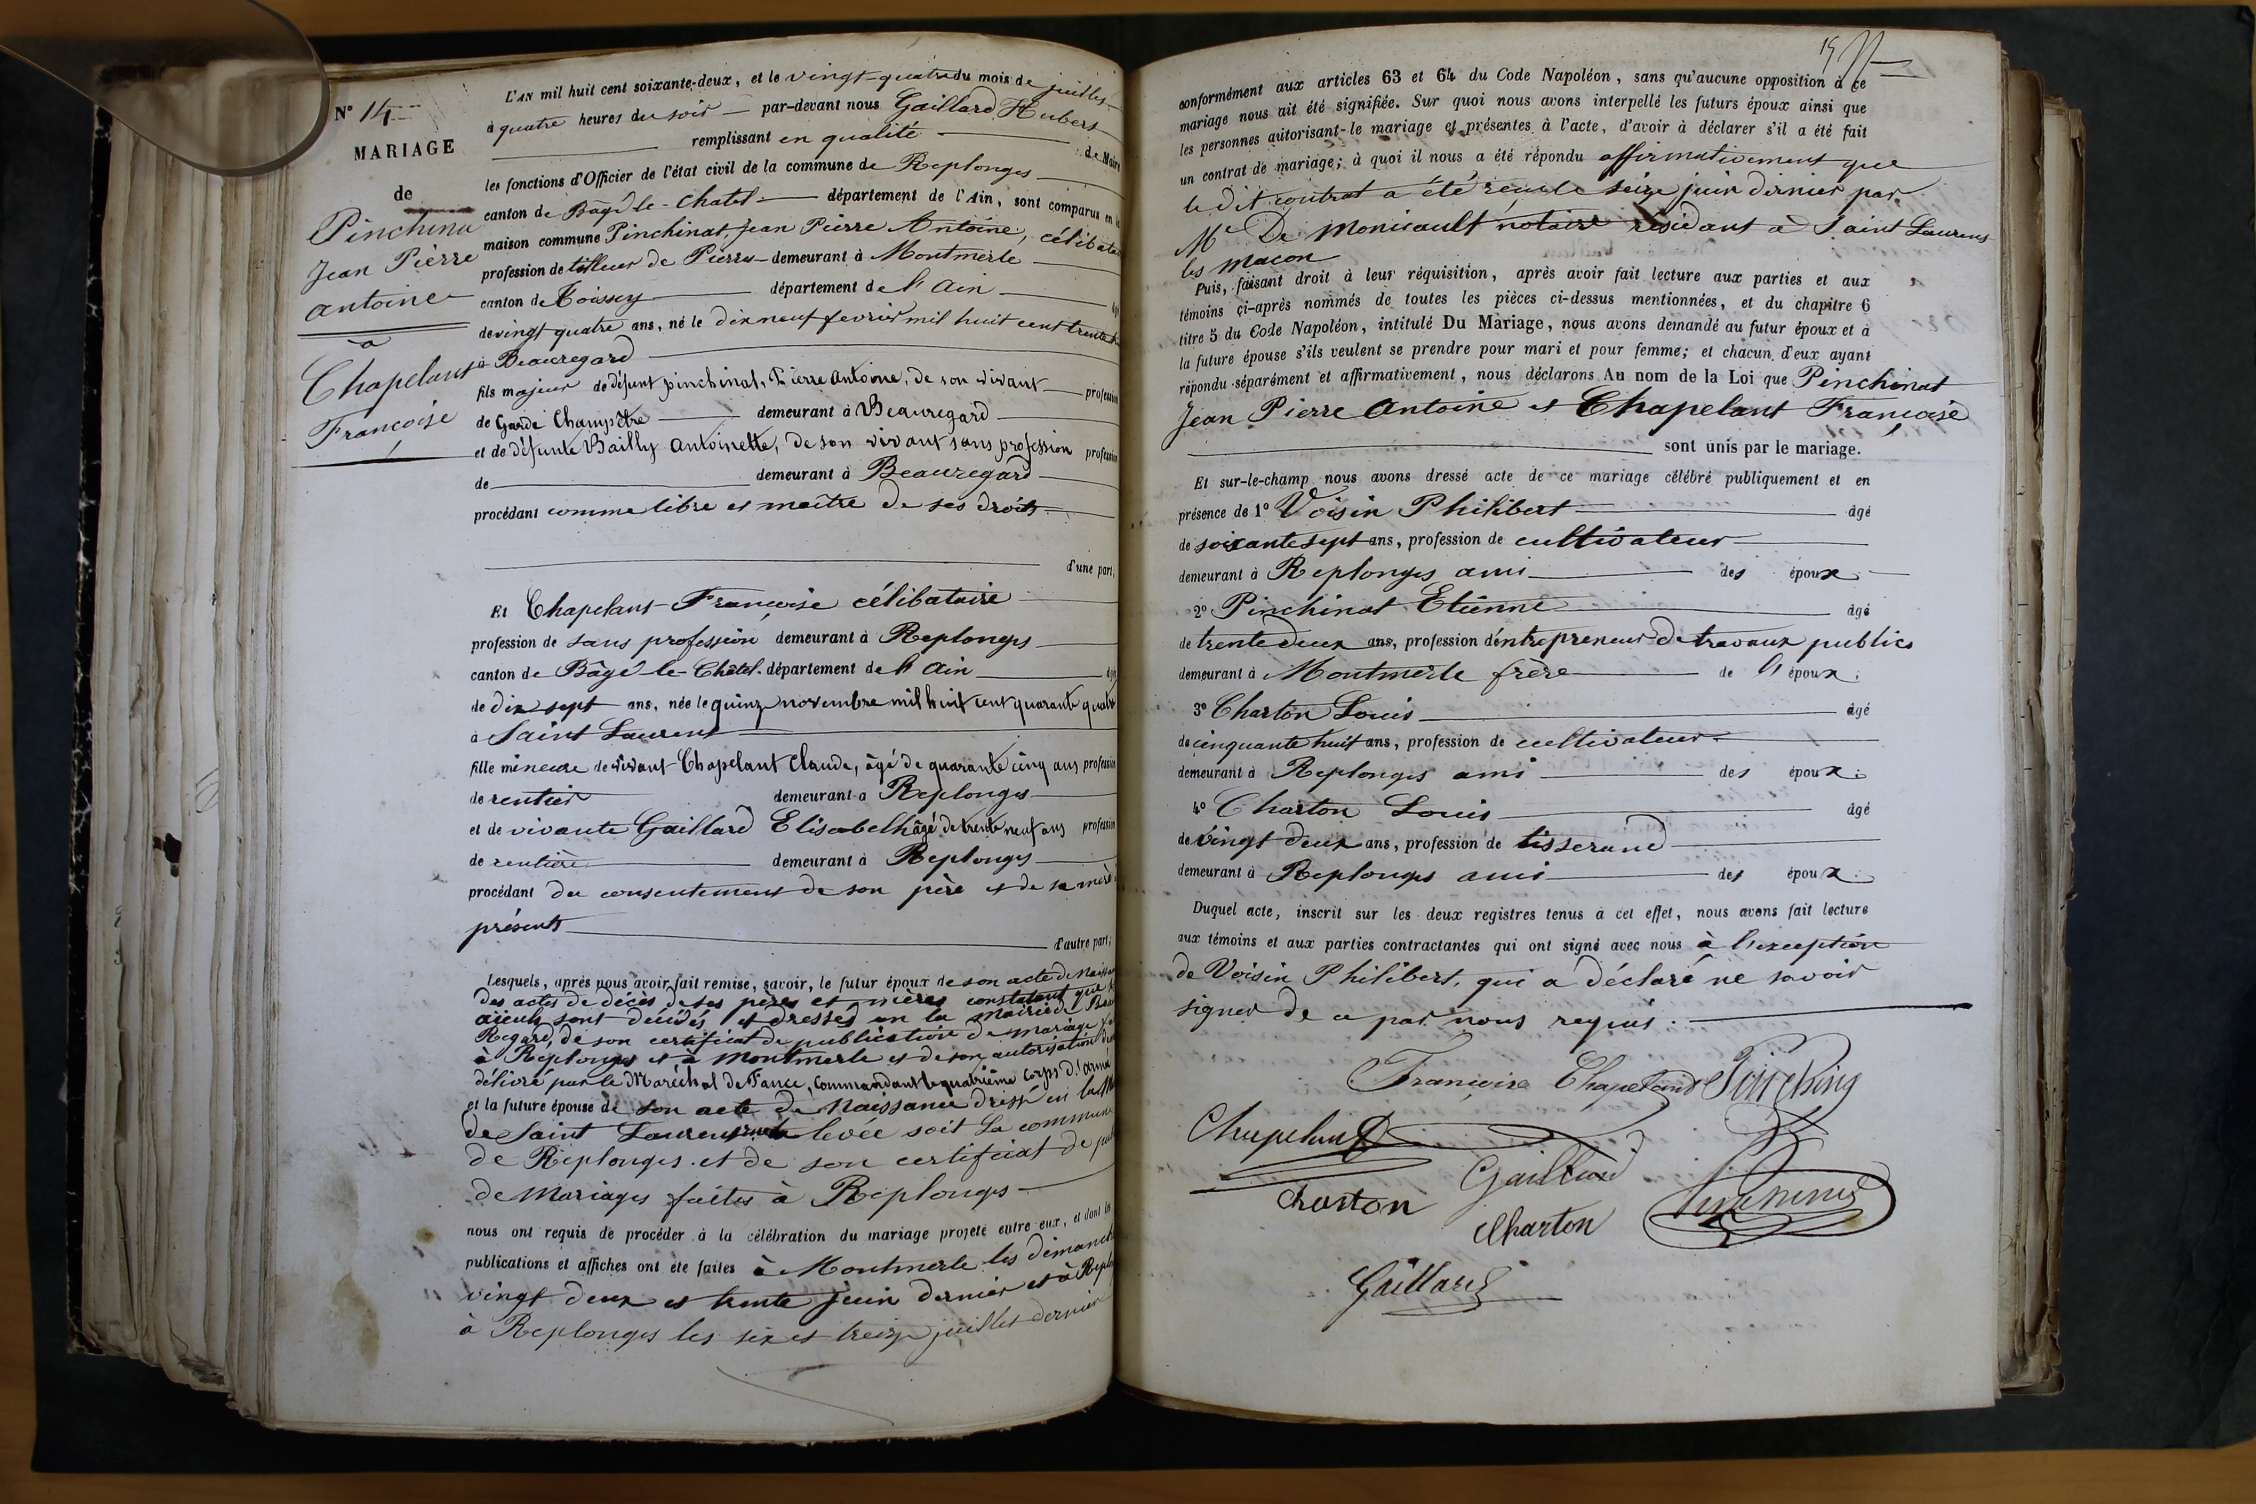 N° 14
MARIAGE
de
Pinchina
Jean Pierre
antoine
à
Chapelant
Françoise
L'AN mil huit cent soixante-deux, et le vingt-quatre du mois de juillet
à quatre heures du soir par-devant nous Gaillard Hubert
remplissant en qualité de Maire
les fonctions d'Officier de l'état civil de la commune de Replonges
canton de Bâgé-le-Chatel département de l'Ain, sont comparus en la
maison commune Pinchinat, Jean Pierre Antoine, célibatai
profession de tilleur de Pierres demeurant à Montmerle
canton de Toissey département de l'Ain
de vingt quatre ans, né le dix neuf fevrier mil huit cent trente
à Beauregard
fils majeur de défunt pinchinat, Pierre Antoine, de son vivant profession
de Garde Champêtre demeurant à Beauregard
et de défunte Bailly Antoinette, de son vivant sans profession profession
de demeurant à Beauregard
procédant comme libre et maître de ses droits
d'une part,
Et Chapelant Françoise célibataire
profession de sans profession demeurant à Replonges
canton de Bâgé-le-Châtel département de l'Ain
de dix sept ans, née le quinze novembre mil huit cent quarante quatre
à Saint Laurent
fille mineure de vivant Chapelant Claude, âgé de quarante cinq ans profession
de rentier demeurant à Replonges
et de vivante Gaillard Elisabeth âgé de trente neuf ans profession
de rentière demeurant à Replonges
procédant du consentement de son père et de sa mère
présents
d'autre part;
Lesquels, après nous avoir fait remise, savoir, le futur époux de son acte de Naiss
des actes de décès de ses pères et mères constatant que
aïeuls sont décédés et dressés en la mairie de Beau
Regard, de son certificat de publication de mariage
à Replonges et à Montmerle et de son autorisation
délivré par le Maréchal de France, Commandant le quatrième Corps d'armé
et la future épouse de son acte de Naissance dressé en la
de Saint Laurent levée soit la commune
de Replonges et de son certificat de
de Mariages faites à Replonges
nous ont requis de procéder à la célébration du mariage projeté entre eux, et dont les
publications et affiches ont été faites à Montmerle les dimanch
vingt deux et trente juin dernier et à Repl
à Replonges les six et treize juillet dernier
conformément aux articles 63 et 64 du Code Napoléon, sans qu'aucune opposition à ce
mariage nous ait été signifiée. Sur quoi nous avons interpellé les futurs époux ainsi que
les personnes autorisant-le mariage et présentes à l'acte, d'avoir à déclarer s'il a été fait
un contrat de mariage; à quoi il nous a été répondu affirmativement que
le dit contrat a été reçu le seize juin dernier par
Me De Monicault notaire résidant à Saint Laurent
les Macon
Puis, faisant droit à leur réquisition, après avoir fait lecture aux parties et aux
témoins ci-après nommés de toutes les pièces ci-dessus mentionnées, et du chapitre 6
titre 5 du Code Napoléon, intitulé Du Mariage, nous avons demandé au futur époux et à
la future épouse s'ils veulent se prendre pour mari et pour femme; et chacun d'eux ayant
répondu séparément et affirmativement, nous déclarons Au nom de la Loi que Pinchinat
Jean Pierre Antoine et Chapelant Françoise
sont unis par le mariage.
Et sur-le-champ nous avons dressé acte de ce mariage célébré publiquement et en
présence de 1° Voisin Philibert âgé
de soixante sept ans, profession de cultivateur
demeurant à Replonges ami des époux
2° Pinchinat Etienne âgé
de trente deux ans, profession d'entrepreneur de travaux publics
demeurant à Montmerle frère de l'époux;
3° Charton Louis âgé
de cinquante huit ans, profession de cultivateur
demeurant à Replonges ami des époux;
4° Charton Louis âgé
de vingt deux ans, profession de tisserand
demeurant à Replonges ami des époux.
Duquel acte, inscrit sur les deux registres tenus à cet effet, nous avons fait lecture
aux témoins et aux parties contractantes qui ont signé avec nous à l'exception
de Voisin Philibert, qui a déclaré ne savoir
signer de ce par nous requis.
Françoise Chapeland
Chapelant
Gaillard
Charton
Charton
Gaillard